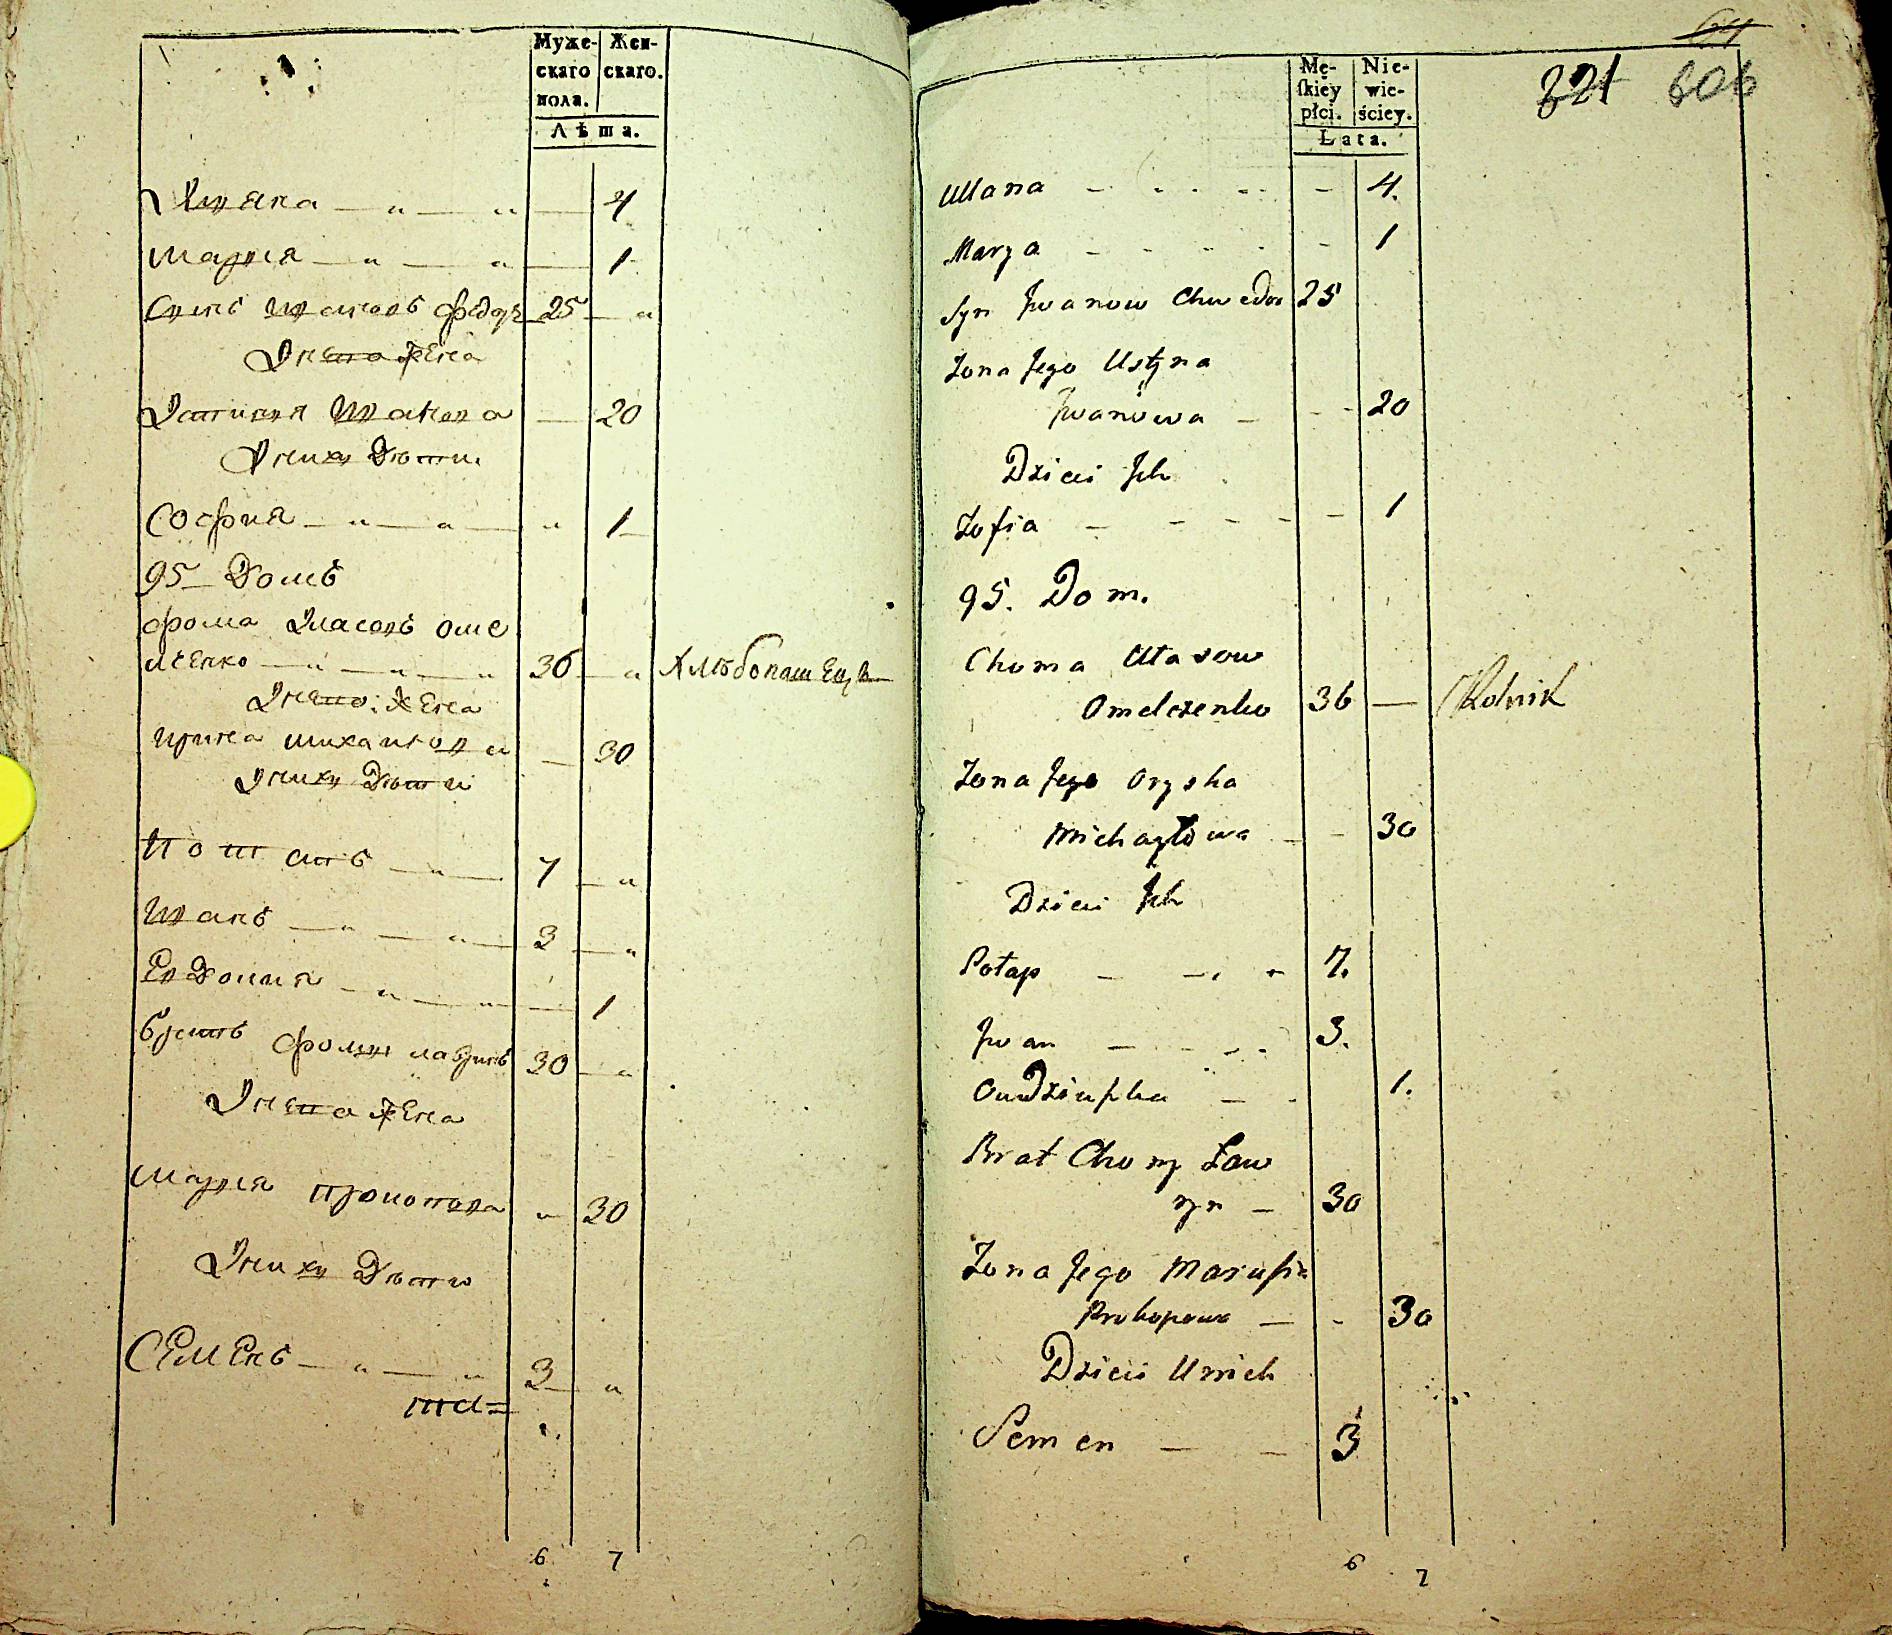 Муже-
скаго
пола.
Жен-
скаго.
Лѣта.
Уляна — 4
Мария — 1
Сынъ Ивановъ Федоръ 25
У него жена
Устиния Иванова — 20
У нихъ Дѣти
София — 1
95 Домъ
Фома Уласовъ Оме
лченко — 36 — Хлѣбопашецъ
У него жена
Ирина Михайлова — 30
У нихъ Дѣти
Потапъ — 7
Иванъ — 3
Евдокия — 1
Братъ Фомы Лавринъ 30
У него жена
Мария Прокопова 30
У нихъ Дѣти
Семенъ — 3
6 7
Mę-
ſkiey
płci.
Nie-
wie-
ściey.
Lata.
221 606
Ullana — 4.
Marya — 1
Syn Jwanow Chwedor 25
Zona Jego Ustyna
Jwanowa — 20
Dzieci Jch
Zofia — 1
95. Dom.
Choma Ułasow
Omelczenko 36 — Rolnik
Zona Jego Oryska
Michayłowa — 30
Dzieci Jch
Potap — 7.
Jwan — 3.
1.
Brat Chomy Ław
ryn — 30
Zona Jego Marusia
Prokopowa — 30
Dzieci Unich
Semen — 3
6 7